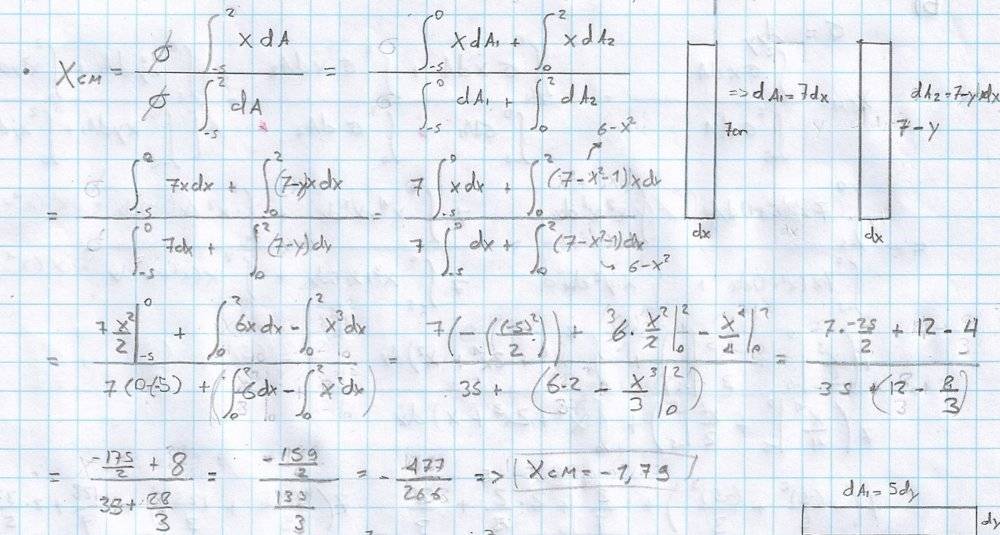 • Xcм = σ ∫₋₅² x dA / σ ∫₋₅² dA = (∫₋₅⁰ x dA₁ + ∫₀² x dA₂) / (∫₋₅⁰ dA₁ + ∫₀² dA₂)
=> dA₁ = 7dx
7cm
dx
dA₂ = 7-y dx
7-y
dx
= (∫₋₅⁰ 7x dx + ∫₀² (7-y)x dx) / (∫₋₅⁰ 7dx + ∫₀² (7-y)dx) = (7 ∫₋₅⁰ x dx + ∫₀² (7-x²-1)x dx) / (7 ∫₋₅⁰ dx + ∫₀² (7-x²-1)dx)
6-x²
6-x²
= (7 x²/2 |₋₅⁰ + ∫₀² 6x dx - ∫₀² x³ dx) / (7(0-(-5)) + (∫₀² 6dx - ∫₀² x² dx)) = (7(-((-5)²/2)) + ³6·x²/2 |₀² - x⁴/4 |₀²) / (35 + (6·2 - x³/3 |₀²)) = (7·-25/2 + 12 - 4) / (35 + (12 - 8/3))
= (-175/2 + 8) / (35 + 28/3) = (-159/2) / (133/3) = -477/266 => Xcм = -1,79
dA₁ = 5dy
dy